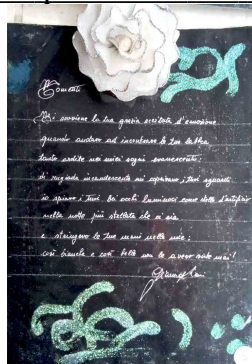 Momenti
Mi sovviene la tua grazia eccitata d'emozione
quando andavo ad incontrare le tue labbra
tanto ardite nei miei sogni evanescenti;
di rugiada incandescente mi coprivano i tuoi sguardi
io aprivo i tuoi occhi luminosi come
nella notte più stellata che ci sia
e stringevo le tue mani nelle mie;
così bianche e così belle non le avevo viste mai!